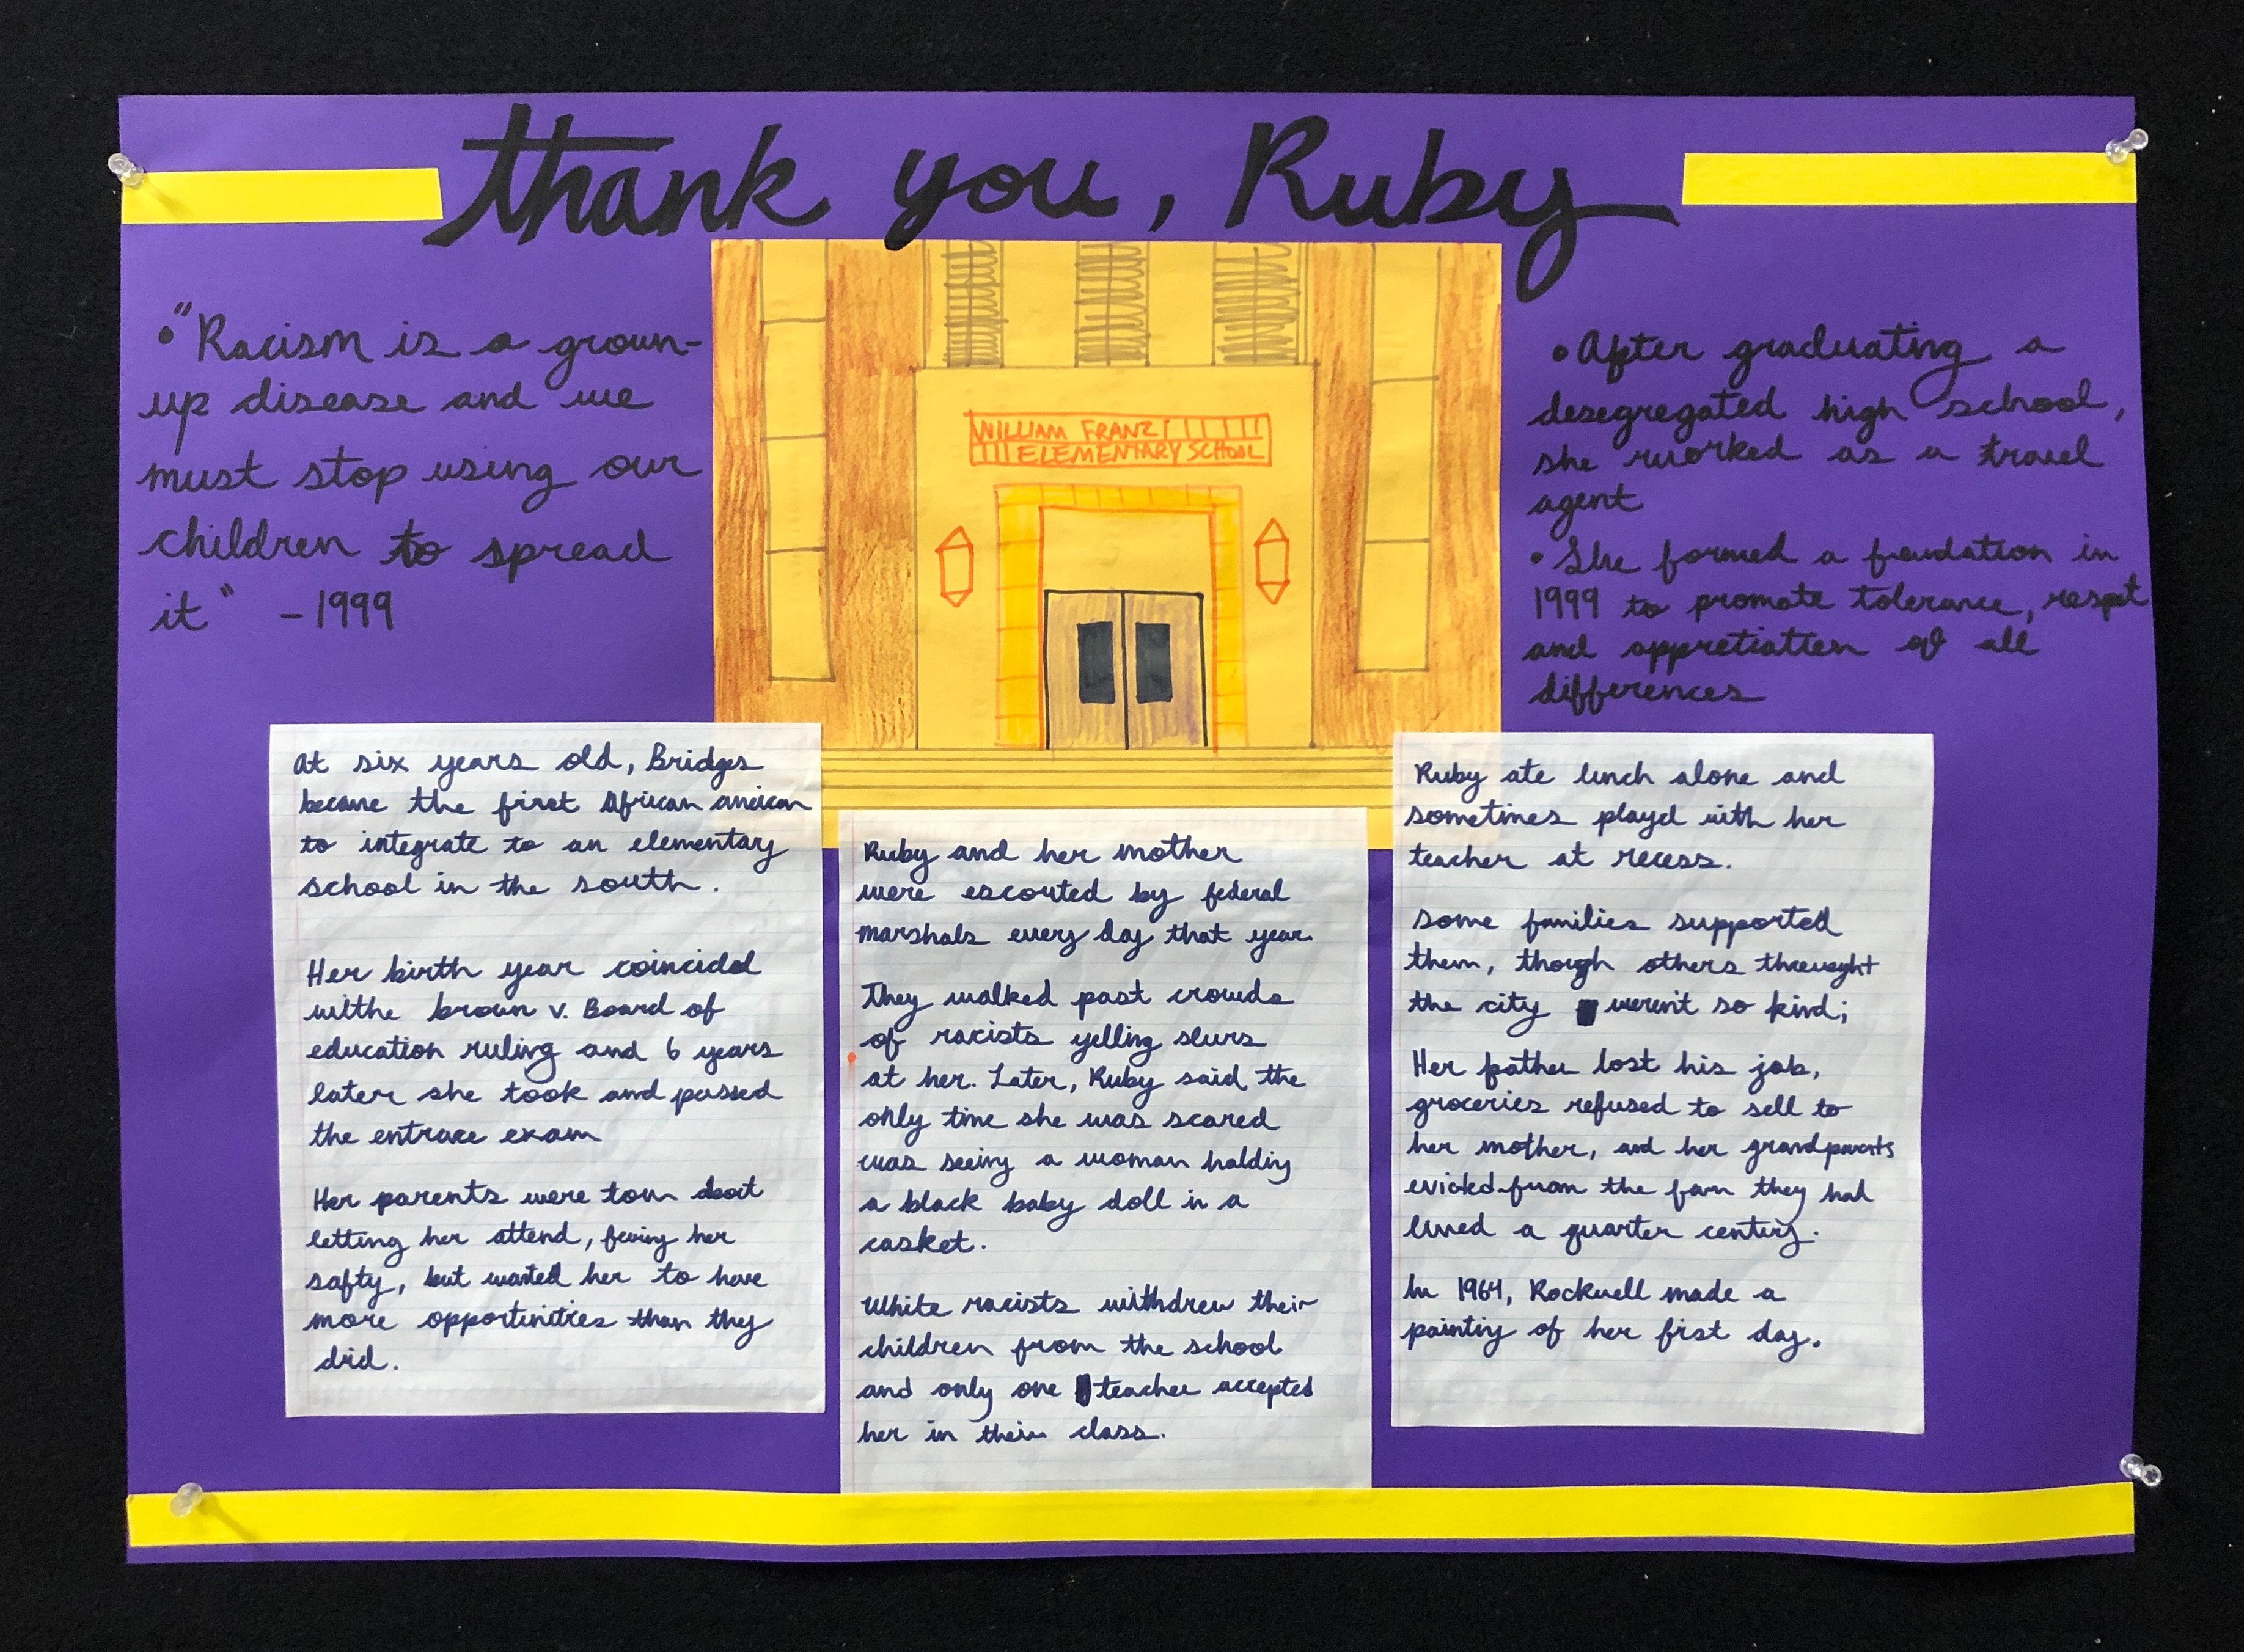 thank you, Ruby
• "Racism is a grown-
up disease and we
must stop using our
children to spread
it" - 1999
WILLIAM FRANZ
ELEMENTARY SCHOOL
• After graduating a
desegregated high school,
she worked as a travel
agent
• She formed a foudation in
1999 to promote tolerance, respet
and appretiation of all
differences
At six years old, Bridges
became the first African american
to integrate to an elementary
school in the south.
Her birth year coincided
withe brown v. Board of
education ruling and 6 years
later she took and passed
the entrace exam
Her parents were torn about
letting her attend, fearing her
safty, but wanted her to have
more opportunities than they
did.
Ruby and her mother
were escorted by federal
marshals every day that year.
They walked past crowds
of racists yelling slurs
at her. Later, Ruby said the
only time she was scared
was seeing a woman holding
a black baby doll in a
casket.
White racists withdrew their
children from the school
and only one teacher accepted
her in their class.
Ruby ate lunch alone and
sometimes playd with her
teacher at recess.
Some families supported
them, though others
the city weren't so kind;
Her father lost his job,
groceries refused to sell to
her mother, and her grandparents
evicked from the farm they had
lived a quarter century.
In 1964, Rockwell made a
painting of her first day.